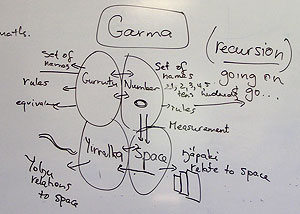 maths.
Ganma
(recursion)
going on
go...
Set of
names
rules
equivale
Gurrutu
Number
Set of
names
1, 2, 3, 4, 5
tens hundreds
rules
Measurement
Yirralka
Space
Yolŋu
relations
to space
Ŋäpaki
relate to space